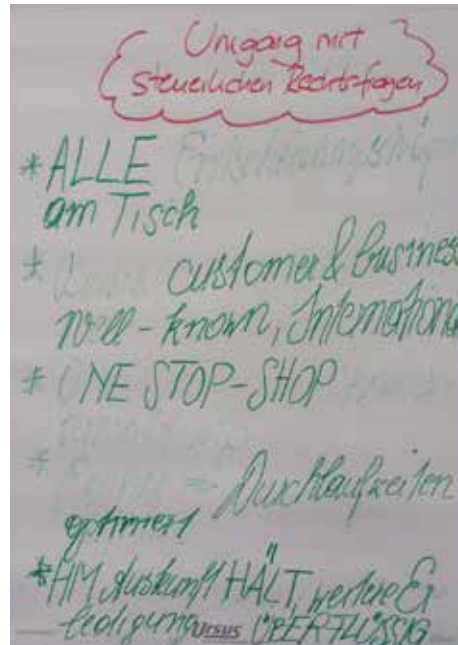 Umgang mit
steuerlichen Rechtsfragen
* ALLE
am Tisch
* customer & business
well-known, International
* ONE STOP-SHOP
* Durchlaufzeiten
optimiert
* HM Auskunft HÄLT, weitere Er
ledigung ÜBERFLÜSSIG
ursus